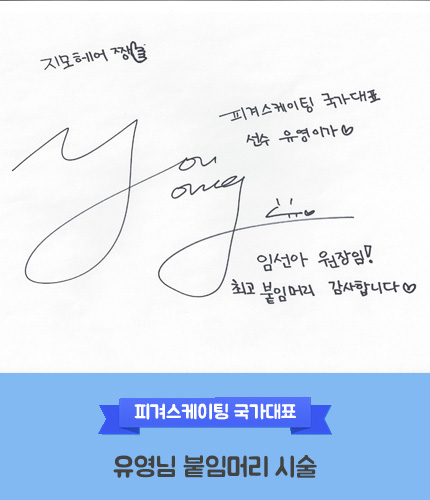 지모헤어 짱
피겨스케이팅 국가대표
선수 유영이가♡
You
oung
임선아 원장임!
최고 붙임머리 감사합니다♡
피겨스케이팅 국가대표
유영님 붙임머리 시술